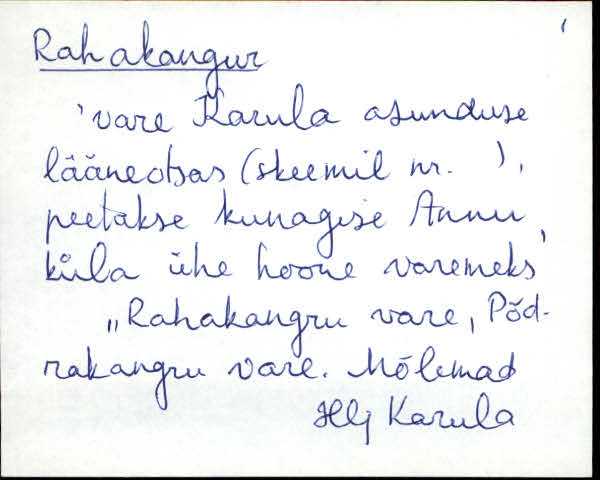 Rahakangur
'vare Karula asunduse
lääneotsas (skeemil nr. ),
peetakse kunagise Annu
küla ühe hoone varemeks'
„Rahakangru vare, Põd-
rakangru vare. Mõlemad
Hlj Karula